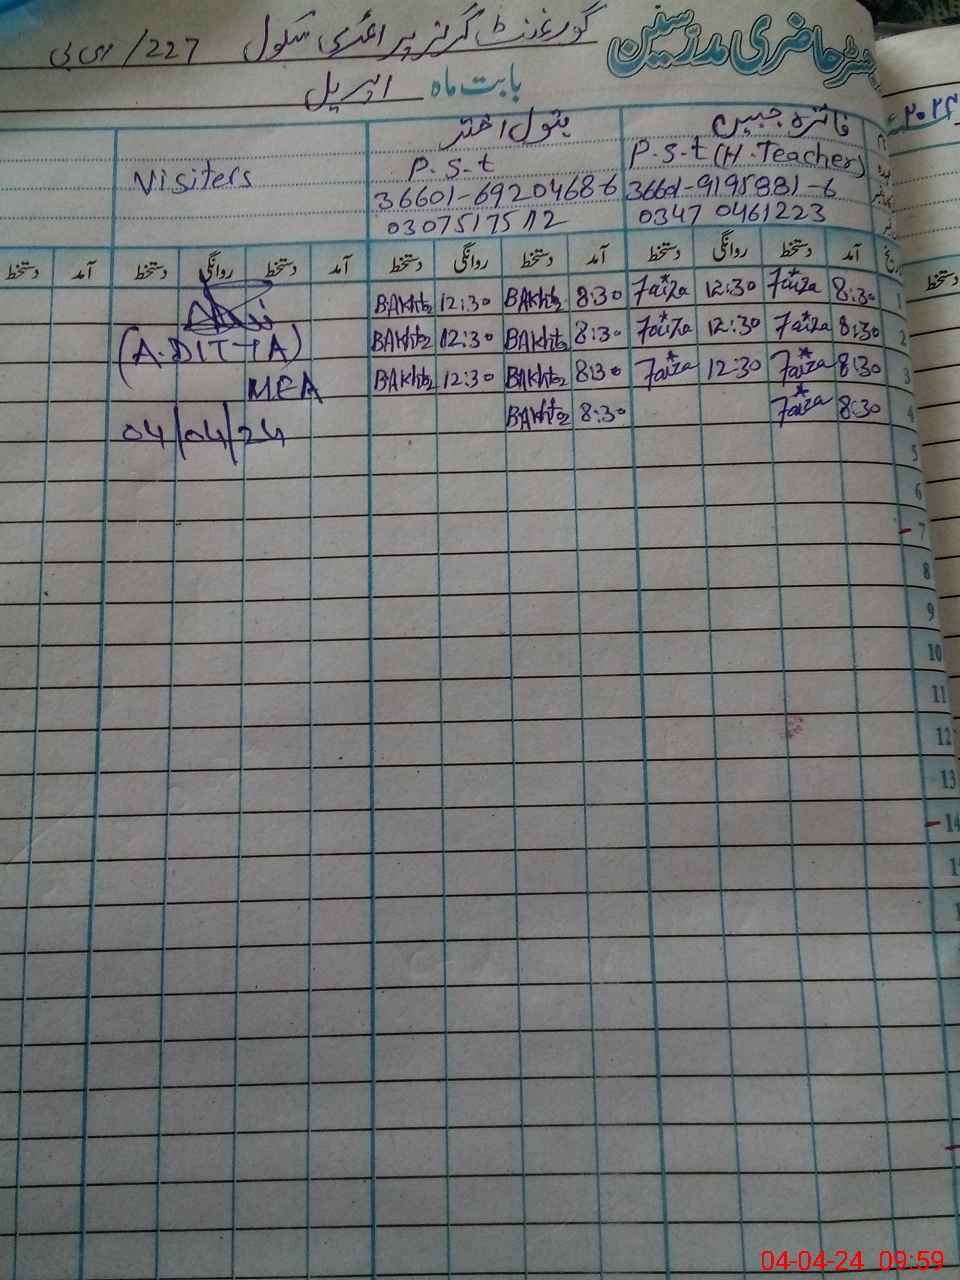 رجسٹر حاضری مدرسین گورنمنٹ گرلز پرائمری سکول 227/ای بی
بابت ماہ اپریل ۲۰۲۴ء
فائزہ جبیں بتول اختر
P.S.t (H.Teacher) P.S.t Visiters
36601-9195881-6 36601-6920468-6
0347 0461223 03075175112
آمد دستخط روانگی دستخط آمد دستخط روانگی دستخط آمد دستخط روانگی دستخط آمد دستخط
1 8:30 Faiza 12:30 Faiza 8:30 BAkht 12:30 BAkht
2 8:30 Faiza 12:30 Faiza 8:30 BAkht 12:30 BAkht (A.DITTA)
3 8:30 Faiza 12:30 Faiza 8:30 BAkht 12:30 BAkht MEA
4 8:30 Faiza 8:30 BAkht 04/04/24
5
6
7
8
9
10
11
12
13
14
دستخط
04-04-24 09:59